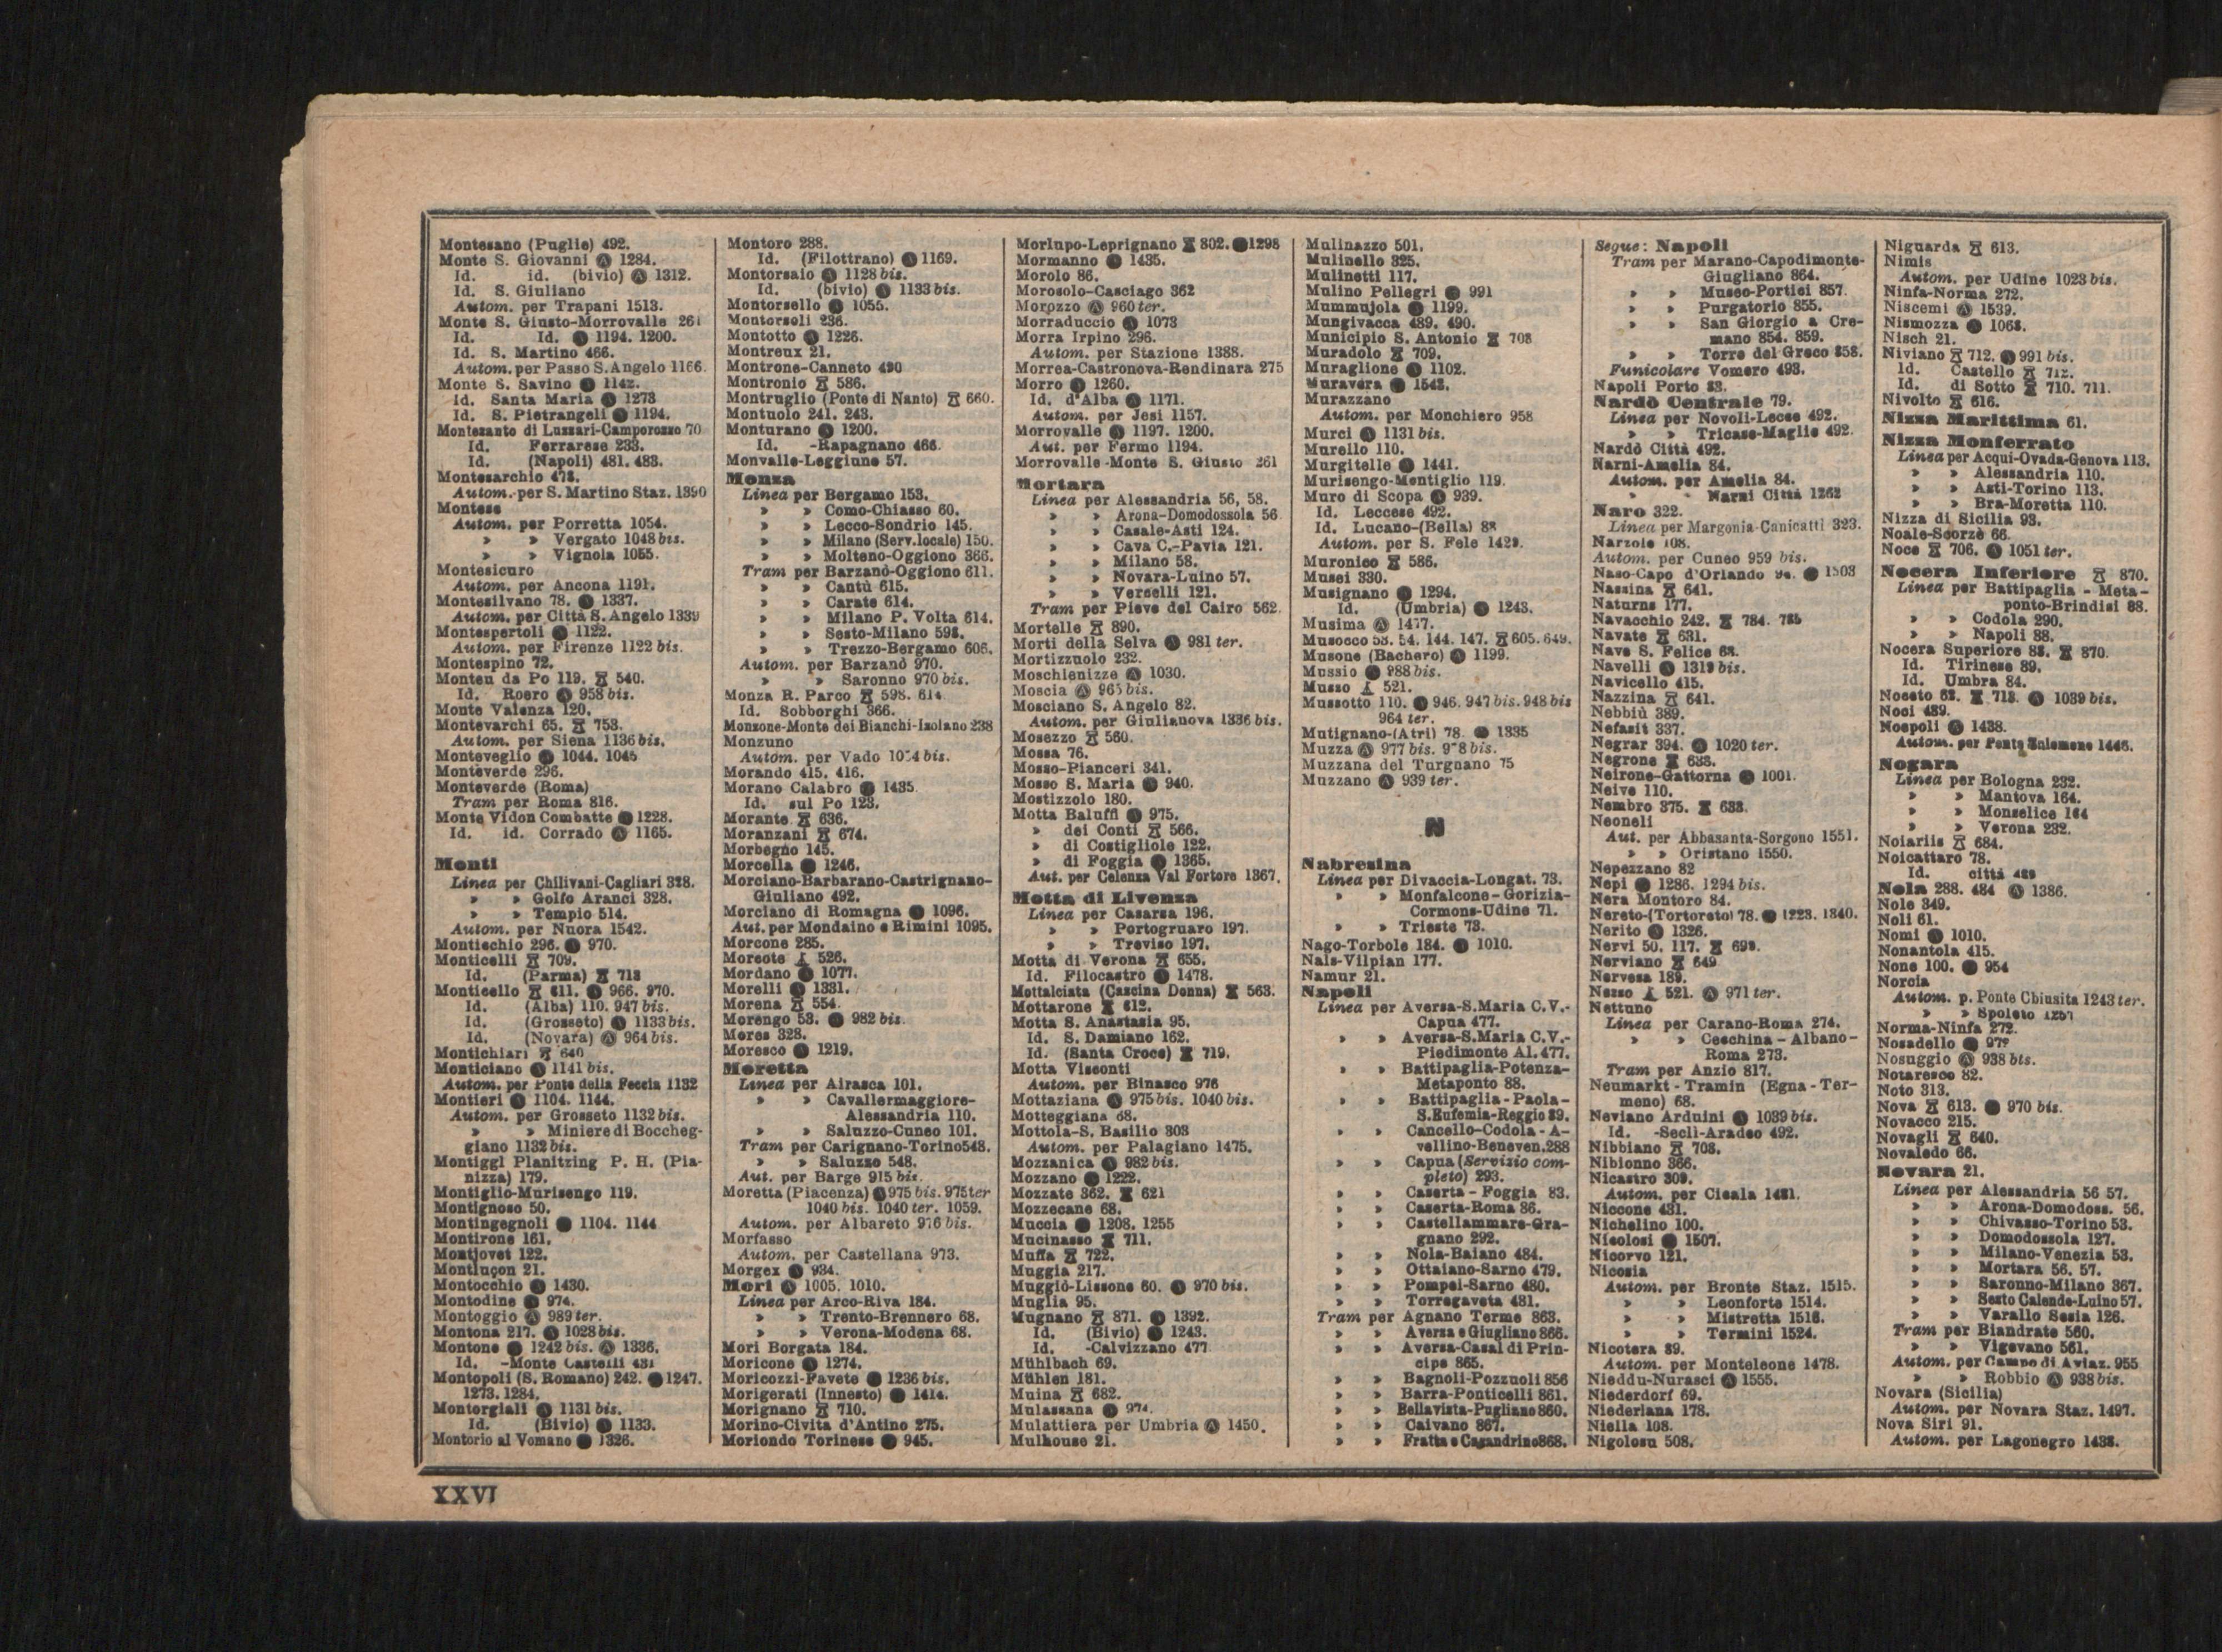 Montesano (Puglie) 492.
Monte S. Giovanni Ⓐ 1284.
Id. id. (bivio) Ⓐ 1312.
Id. S. Giuliano
Autom. per Trapani 1513.
Monte S. Giusto-Morrovalle 261
Id. Id. Ⓐ 1194. 1200.
Id. S. Martino 466.
Autom. per Passo S. Angelo 1166.
Monte S. Savino Ⓐ 1142.
Id. Santa Maria Ⓐ 1273
Id. S. Pietrangeli Ⓐ 1194.
Montesanto di Lussari-Camporosso 70
Id. Ferrarese 233.
Id. (Napoli) 481. 483.
Montesarchio 478.
Autom. per S. Martino Staz. 1390
Montese
Autom. per Porretta 1054.
» » Vergato 1048 bis.
» » Vignola 1055.
Montesicuro
Autom. per Ancona 1191.
Montesilvano 78. Ⓐ 1337.
Autom. per Città S. Angelo 1339
Montespertoli Ⓐ 1122.
Autom. per Firenze 1122 bis.
Montespino 72.
Monteu da Po 119. 540.
Id. Roero Ⓐ 958 bis.
Monte Valenza 120.
Montevarchi 65. 753.
Autom. per Siena 1136 bis.
Monteveglio Ⓐ 1044. 1045
Monteverde 296.
Monteverde (Roma)
Tram per Roma 816.
Monte Vidon Combatte Ⓐ 1228.
Id. id. Corrado Ⓐ 1165.
Monti
Linea per Chilivani-Cagliari 328.
» » Golfo Aranci 328.
» » Tempio 514.
Autom. per Nuora 1542.
Montiechio 296. Ⓐ 970.
Monticelli 709.
Id. (Parma) 713
Monticello 611. Ⓐ 966. 970.
Id. (Alba) 110. 947 bis.
Id. (Grosseto) Ⓐ 1133 bis.
Id. (Novara) Ⓐ 964 bis.
Montichiari 640
Monticiano Ⓐ 1141 bis.
Autom. per Ponte della Feccia 1132
Montieri Ⓐ 1104. 1144.
Autom. per Grosseto 1132 bis.
» » Miniere di Boccheg-
giano 1132 bis.
Montiggl Planitzing P. H. (Pia-
nizza) 179.
Montiglio-Murisengo 119.
Montignoso 50.
Montingegnoli Ⓐ 1104. 1144
Montirone 161.
Montjovet 122.
Montluçon 21.
Montocchio Ⓐ 1430.
Montodine Ⓐ 974.
Montoggio Ⓐ 989 ter.
Montona 217. Ⓐ 1028 bis.
Montone Ⓐ 1242 bis. Ⓐ 1336.
Id. -Monte Castelli 481
Montopoli (S. Romano) 242. Ⓐ 1247.
1273. 1284.
Montorgiali Ⓐ 1131 bis.
Id. (Bivio) Ⓐ 1133.
Montorio al Vomano Ⓐ 1326.
Montoro 288.
Id. (Filottrano) Ⓐ 1169.
Montorsaio Ⓐ 1128 bis.
Id. (bivio) Ⓐ 1133 bis.
Montorsello Ⓐ 1055.
Montorsoli 236.
Montotto Ⓐ 1226.
Montreux 21.
Montrone-Canneto 490
Montronio 586.
Montruglio (Ponte di Nanto) 660.
Montuolo 241. 243.
Monturano Ⓐ 1200.
Id. -Rapagnano 466.
Monvalle-Leggiuno 57.
Monza
Linea per Bergamo 153.
» » Como-Chiasso 60.
» » Lecco-Sondrio 145.
» » Milano (Serv. locale) 150.
» » Molteno-Oggiono 366.
Tram per Barzanò-Oggiono 611.
» » Cantù 615.
» » Carate 614.
» » Milano P. Volta 614.
» » Sesto-Milano 598.
» » Trezzo-Bergamo 606.
Autom. per Barzanò 970.
» » Saronno 970 bis.
Monza R. Parco 598. 614.
Id. Sobborghi 366.
Monzone-Monte dei Bianchi-Isolano 238
Monzuno
Autom. per Vado 1054 bis.
Morando 415. 416.
Morano Calabro Ⓐ 1435.
Id. sul Po 123.
Morante 636.
Moranzani 674.
Morbegno 145.
Morcella Ⓐ 1246.
Morciano-Barbarano-Castrignano-
Giuliano 492.
Morciano di Romagna Ⓐ 1096.
Aut. per Mondaino e Rimini 1095.
Morcone 285.
Morcote 526.
Mordano Ⓐ 1077.
Morelli Ⓐ 1331.
Morena 554.
Morengo 53. Ⓐ 982 bis.
Mores 328.
Moresco Ⓐ 1219.
Moretta
Linea per Airasca 101.
» » Cavallermaggiore-
Alessandria 110.
» » Saluzzo-Cuneo 101.
Tram per Carignano-Torino 548.
» » Saluzzo 548.
Aut. per Barge 915 bis.
Moretta (Piacenza) Ⓐ 975 bis. 975 ter
1040 bis. 1040 ter. 1059.
Autom. per Albareto 976 bis.
Morfasso
Autom. per Castellana 973.
Morgex Ⓐ 934.
Mori Ⓐ 1005. 1010.
Linea per Arco-Riva 184.
» » Trento-Brennero 68.
» » Verona-Modena 68.
Mori Borgata 184.
Moricone Ⓐ 1274.
Moricozzi-Favete Ⓐ 1236 bis.
Morigerati (Innesto) Ⓐ 1414.
Morignano 710.
Morino-Civita d'Antino 275.
Moriondo Torinese Ⓐ 945.
Morlupo-Leprignano 802. Ⓐ 1298
Mormanno Ⓐ 1435.
Morolo 86.
Morosolo-Casciago 362
Morozzo Ⓐ 960 ter.
Morraduccio Ⓐ 1073
Morra Irpino 296.
Autom. per Stazione 1388.
Morrea-Castronova-Rendinara 275
Morro Ⓐ 1260.
Id. d'Alba Ⓐ 1171.
Autom. per Jesi 1157.
Morrovalle Ⓐ 1197. 1200.
Aut. per Fermo 1194.
Morrovalle-Monte S. Giusto 261
Mortara
Linea per Alessandria 56, 58.
» » Arona-Domodossola 56
» » Casale-Asti 124.
» » Cava C.-Pavia 121.
» » Milano 58.
» » Novara-Luino 57.
» » Vercelli 121.
Tram per Pieve del Cairo 562.
Mortelle 890.
Morti della Selva Ⓐ 981 ter.
Mortizzuolo 232.
Moschienizze Ⓐ 1030.
Moscia Ⓐ 965 bis.
Mosciano S. Angelo 82.
Autom. per Giulianova 1336 bis.
Mosezzo 560.
Mossa 76.
Mosso-Pianceri 341.
Mosso S. Maria Ⓐ 940.
Mostizzolo 180.
Motta Baluffi Ⓐ 975.
» dei Conti 566.
» di Costigliole 122.
» di Foggia Ⓐ 1365.
Aut. per Celenza Val Fortore 1367.
Motta di Livenza
Linea per Casarsa 196.
» » Portogruaro 197.
» » Treviso 197.
Motta di Verona 655.
Id. Filocastro Ⓐ 1478.
Mottalciata (Cascina Donna) 563.
Mottarone 612.
Motta S. Anastasia 95.
Id. S. Damiano 162.
Id. (Santa Croce) 719.
Motta Visconti
Autom. per Binasco 976
Mottaziana Ⓐ 975 bis. 1040 bis.
Motteggiana 68.
Mottola-S. Basilio 303
Autom. per Palagiano 1475.
Mozzanica Ⓐ 982 bis.
Mozzano Ⓐ 1222.
Mozzate 362. 621
Mozzecane 68.
Muccia Ⓐ 1208. 1255
Mucinasso 711.
Muffa 722.
Muggia 217.
Muggiò-Lissone 60. Ⓐ 970 bis.
Muglia 95.
Mugnano 871. Ⓐ 1392.
Id. (Bivio) Ⓐ 1243.
Id. -Calvizzano 477
Mühlbach 69.
Mühlen 181.
Muina 682.
Mulassana Ⓐ 974.
Mulattiera per Umbria Ⓐ 1450.
Mulhouse 21.
Mulinazzo 501.
Mulinello 325.
Mulinetti 117.
Mulino Pellegri Ⓐ 991
Mummujola Ⓐ 1199.
Mungivacca 489. 490.
Municipio S. Antonio 708
Muradolo 709.
Muraglione Ⓐ 1102.
Muravera Ⓐ 1543.
Murazzano
Autom. per Monchiero 958
Murci Ⓐ 1131 bis.
Murello 110.
Murgitelle Ⓐ 1441.
Murisengo-Montiglio 119.
Muro di Scopa Ⓐ 939.
Id. Leccese 492.
Id. Lucano-(Bella) 88
Autom. per S. Fele 1423.
Muronico 586.
Musei 330.
Musignano Ⓐ 1294.
Id. (Umbria) Ⓐ 1243.
Musima Ⓐ 1477.
Musocco 53. 54. 144. 147. 605. 649.
Musone (Bachero) Ⓐ 1199.
Mussio Ⓐ 988 bis.
Musso 521.
Mussotto 110. Ⓐ 946. 947 bis. 948 bis
964 ter.
Mutignano-(Atri) 78. Ⓐ 1335
Muzza Ⓐ 977 bis. 978 bis.
Muzzana del Turgnano 75
Muzzano Ⓐ 939 ter.
N
Nabresina
Linea per Divaccia-Longat. 73.
» » Monfalcone-Gorizia-
Cormons-Udine 71.
» » Trieste 73.
Nago-Torbole 184. Ⓐ 1010.
Nals-Vilpian 177.
Namur 21.
Napoli
Linea per Aversa-S. Maria C. V.-
Capua 477.
» » Aversa-S. Maria C. V.-
Piedimonte Al. 477.
» » Battipaglia-Potenza-
Metaponto 88.
» » Battipaglia-Paola-
S. Eufemia-Reggio 89.
» » Cancello-Codola-A-
vellino-Beneven. 288
» » Capua (Servizio com-
pleto) 293.
» » Caserta-Foggia 83.
» » Caserta-Roma 86.
» » Castellammare-Gra-
gnano 292.
» » Nola-Baiano 484.
» » Ottaiano-Sarno 479.
» » Pompei-Sarno 480.
» » Torregaveta 481.
Tram per Agnano Terme 863.
» » Aversa e Giugliano 866.
» » Aversa-Casal di Prin-
cipe 865.
» » Bagnoli-Pozzuoli 856
» » Barra-Ponticelli 861.
» » Bellavista-Pugliano 860.
» » Caivano 867.
» » Fratta e Casandrino 868.
Segue: Napoli
Tram per Marano-Capodimonte-
Giugliano 864.
» » Museo-Portici 857.
» » Purgatorio 855.
» » San Giorgio a Cre-
mano 854. 859.
» » Torre del Greco 858.
Funicolare Vomero 493.
Napoli Porto 83.
Nardò Centrale 79.
Linea per Novoli-Lecce 492.
» » Tricase-Maglie 492.
Nardò Città 492.
Narni-Amelia 84.
Autom. per Amelia 84.
» » Narni Città 1262
Naro 322.
Linea per Margonia-Canicatti 323.
Narzole 108.
Autom. per Cuneo 959 bis.
Naso-Capo d'Orlando 94. Ⓐ 1503
Nassina 641.
Naturns 177.
Navacchio 242. 784. 785
Navate 631.
Nave S. Felice 68.
Navelli Ⓐ 1319 bis.
Navicello 415.
Nazzina 641.
Nebbiù 389.
Nefasit 337.
Negrar 394. Ⓐ 1020 ter.
Negrone 633.
Neirone-Gattorna Ⓐ 1001.
Neive 110.
Nembro 375. 633.
Neoneli
Aut. per Abbasanta-Sorgono 1551.
» » Oristano 1550.
Nepezzano 82
Nepi Ⓐ 1286. 1294 bis.
Nera Montoro 84.
Nereto-(Tortoreto) 78. Ⓐ 1223. 1340.
Nerito Ⓐ 1326.
Nervi 50. 117. 699.
Nerviano 649
Nervesa 189.
Nesso 521. Ⓐ 971 ter.
Nettuno
Linea per Carano-Roma 274.
» » Ceschina-Albano-
Roma 273.
Tram per Anzio 817.
Neumarkt-Tramin (Egna-Ter-
meno) 68.
Neviano Arduini Ⓐ 1039 bis.
Id. -Seclì-Aradeo 492.
Nibbiano 708.
Nibionno 366.
Nicastro 309.
Autom. per Cicala 1481.
Niccone 481.
Nichelino 100.
Nicolosi Ⓐ 1507.
Nicorvo 121.
Nicosia
Autom. per Bronte Staz. 1515.
» » Leonforte 1514.
» » Mistretta 1516.
» » Termini 1524.
Nicotera 89.
Autom. per Monteleone 1478.
Nieddu-Nurasci Ⓐ 1555.
Niederdorf 69.
Niederlana 178.
Niella 108.
Nigolosu 508.
Niguarda 613.
Nimis
Autom. per Udine 1023 bis.
Ninfa-Norma 272.
Niscemi Ⓐ 1539.
Nismozza Ⓐ 1068.
Nisch 21.
Niviano 712. Ⓐ 991 bis.
Id. Castello 712.
Id. di Sotto 710. 711.
Nivolto 616.
Nizza Marittima 61.
Nizza Monferrato
Linea per Acqui-Ovada-Genova 113.
» » Alessandria 110.
» » Asti-Torino 113.
» » Bra-Moretta 110.
Nizza di Sicilia 93.
Noale-Scorzè 66.
Noce 706. Ⓐ 1051 ter.
Nocera Inferiore 870.
Linea per Battipaglia-Meta-
ponto-Brindisi 88.
» » Codola 290.
» » Napoli 88.
Nocera Superiore 88. 870.
Id. Tirinese 89.
Id. Umbra 84.
Noceto 62. 713. Ⓐ 1039 bis.
Noci 489.
Noepoli Ⓐ 1438.
Autom. per Ponte Salomone 1446.
Nogara
Linea per Bologna 232.
» » Mantova 164.
» » Monselice 164
» » Verona 232.
Noiariis 684.
Noicattaro 78.
Id. città 489
Nola 288. 484 Ⓐ 1386.
Nole 349.
Noli 61.
Nomi Ⓐ 1010.
Nonantola 415.
None 100. Ⓐ 954
Norcia
Autom. p. Ponte Chiusita 1243 ter.
» » Spoleto 1257
Norma-Ninfa 272.
Nosadello Ⓐ 979
Nosuggio Ⓐ 938 bis.
Notaresco 82.
Noto 313.
Nova 613. Ⓐ 970 bis.
Novacco 215.
Novagli 640.
Novaledo 66.
Novara 21.
Linea per Alessandria 56 57.
» » Arona-Domodoss. 56.
» » Chivasso-Torino 53.
» » Domodossola 127.
» » Milano-Venezia 53.
» » Mortara 56. 57.
» » Saronno-Milano 367.
» » Sesto Calende-Luino 57.
» » Varallo Sesia 126.
Tram per Biandrate 560.
» » Vigevano 561.
Autom. per Campo di Aviaz. 955
» » Robbio Ⓐ 938 bis.
Novara (Sicilia)
Autom. per Novara Staz. 1497.
Nova Siri 91.
Autom. per Lagonegro 1438.
XXVI